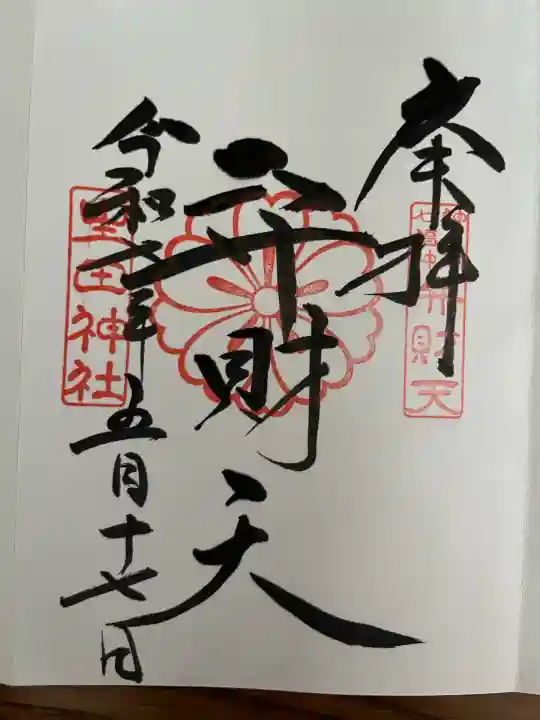 奉拝
七福神
弁財天
弁財天
令和六年五月十七日
生田神社